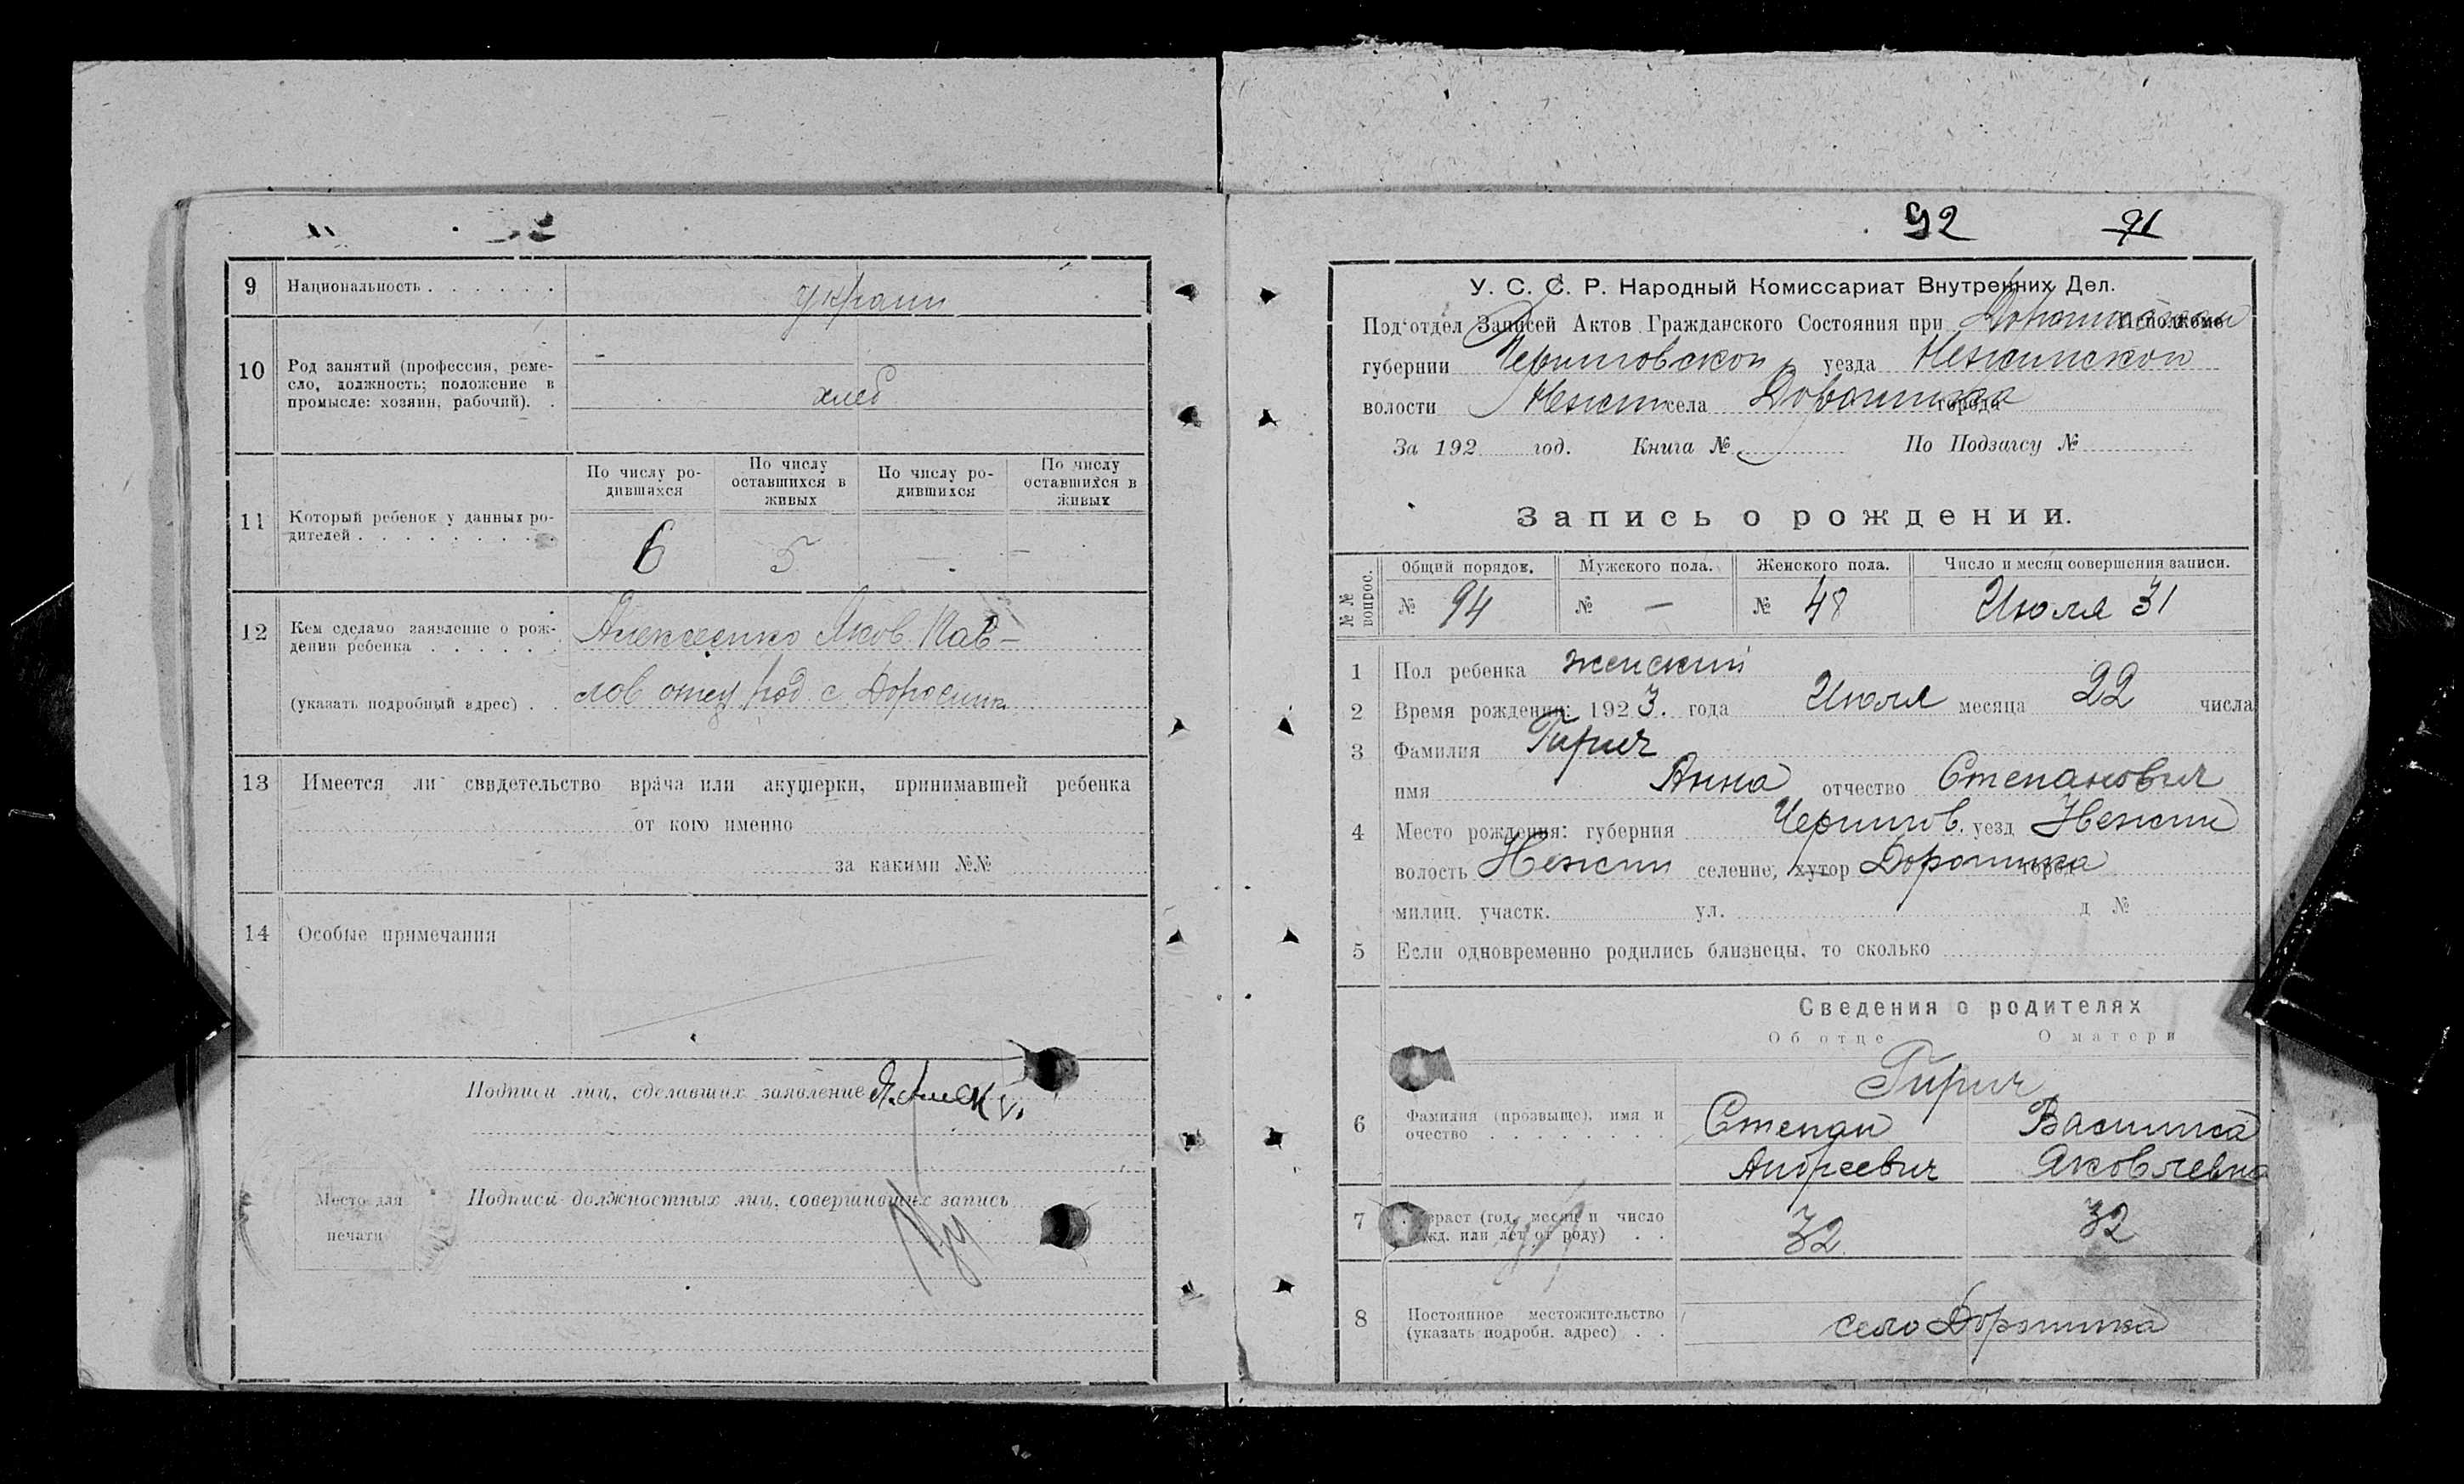 9 Национальность . . . . . . украин
10 Род занятий (профессия, реме-
сло, должность; положение в
промысле: хозяин, рабочий). . хлеб
По числу ро-
дившихся
По числу
оставшихся в
живых
По числу ро-
дившихся
По числу
оставшихся в
живых
11 Который ребенок у данных ро-
дителей . . . . . . . . . 6 5 — —
12 Кем сделано заявление о рож-
дении ребенка . . . . . . Алексеенко Яков Пав-
(указать подробный адрес) . . лов отец род с
13 Имеется ли свидетельство врача или акушерки, принимавшей ребенка
от кого именно
за какими №№
14 Особые примечания
Подписи лиц, сделавших заявление
Подписи должностных лиц, совершивших запись
Место для
печати
92 91
У. С. С. Р. Народный Комиссариат Внутренних Дел.
Под'отдел Записей Актов Гражданского Состояния при Исполкоме
губернии Черниговской уезда Нежинской
волости Нежин села Дорошика города
За 192 год. Книга № По Подзагсу №
Запись о рождении.
№№ вопрос.
Общий порядок. Мужского пола. Женского пола. Число и месяц совершения записи.
№ 94 № — № 48 Июля 31
1 Пол ребенка женский
2 Время рождения: 1923. года Июля месяца 22 числа
3 Фамилия Гирич
имя Анна отчество Степанович
4 Место рождения: губерния Чернигов. уезд Нежин
волость Нежин селение, хутор Дорошика город
милиц. участк. ул. д №
5 Если одновременно родились близнецы, то сколько
Сведения о родителях
Об отце О матери
Гирич
6 Фамилия (прозвыще), имя и
очество . . . . . . . . . Степан Василиса
Андреевич Яковлевна
7 Возраст (год, месяц и число
рожд. или лет от роду) . . 32 32
8 Постоянное местожительство
(указать подробн. адрес) . . село Дорошика